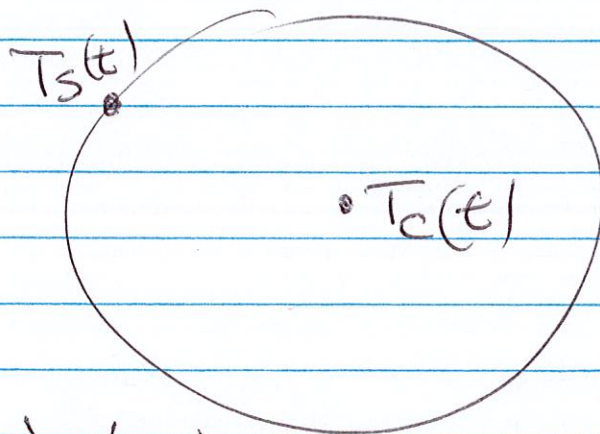 Ts(t)
Tc(t)